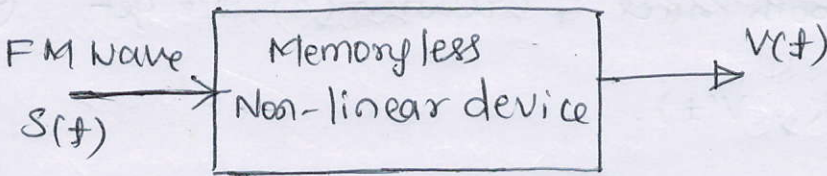 FM Wave
S(t)
Memoryless
Non-linear device
V(t)